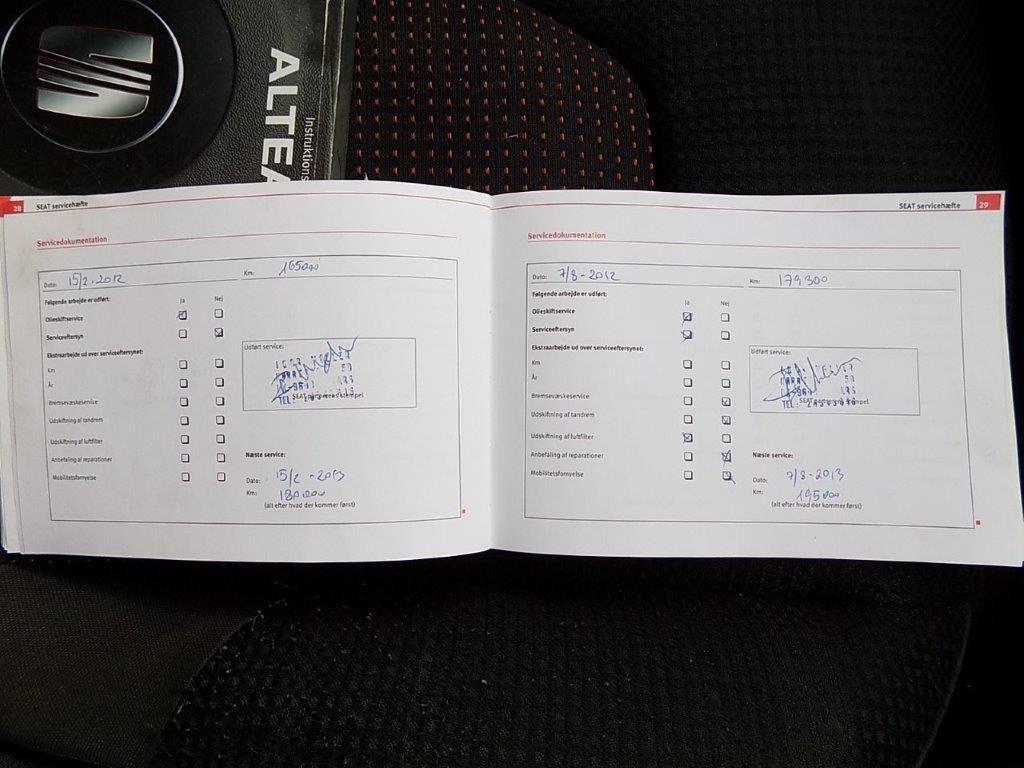 ALTEA
Instruktions
28 SEAT servicehæfte
Servicedokumentation
Dato: 15/2-2012 Km: 165000
Følgende arbejde er udført: Ja Nej
Olieskiftservice
Serviceeftersyn
Ekstraarbejde ud over serviceeftersynet:
Km
År
Bremsevæskeservice
Udskiftning af tandrem
Udskiftning af luftfilter
Anbefaling af reparationer
Mobilitetsfornyelse
Udført service:
TEL:
Næste service:
Dato: 15/2-2013
Km: 180.000
(alt efter hvad der kommer først)
SEAT servicehæfte 29
Servicedokumentation
Dato: 7/8-2012 Km: 179300
Følgende arbejde er udført: Ja Nej
Olieskiftservice
Serviceeftersyn
Ekstraarbejde ud over serviceeftersynet:
Km
År
Bremsevæskeservice
Udskiftning af tandrem
Udskiftning af luftfilter
Anbefaling af reparationer
Mobilitetsfornyelse
Udført service:
TEL:
Næste service:
Dato: 7/8-2013
Km: 195000
(alt efter hvad der kommer først)